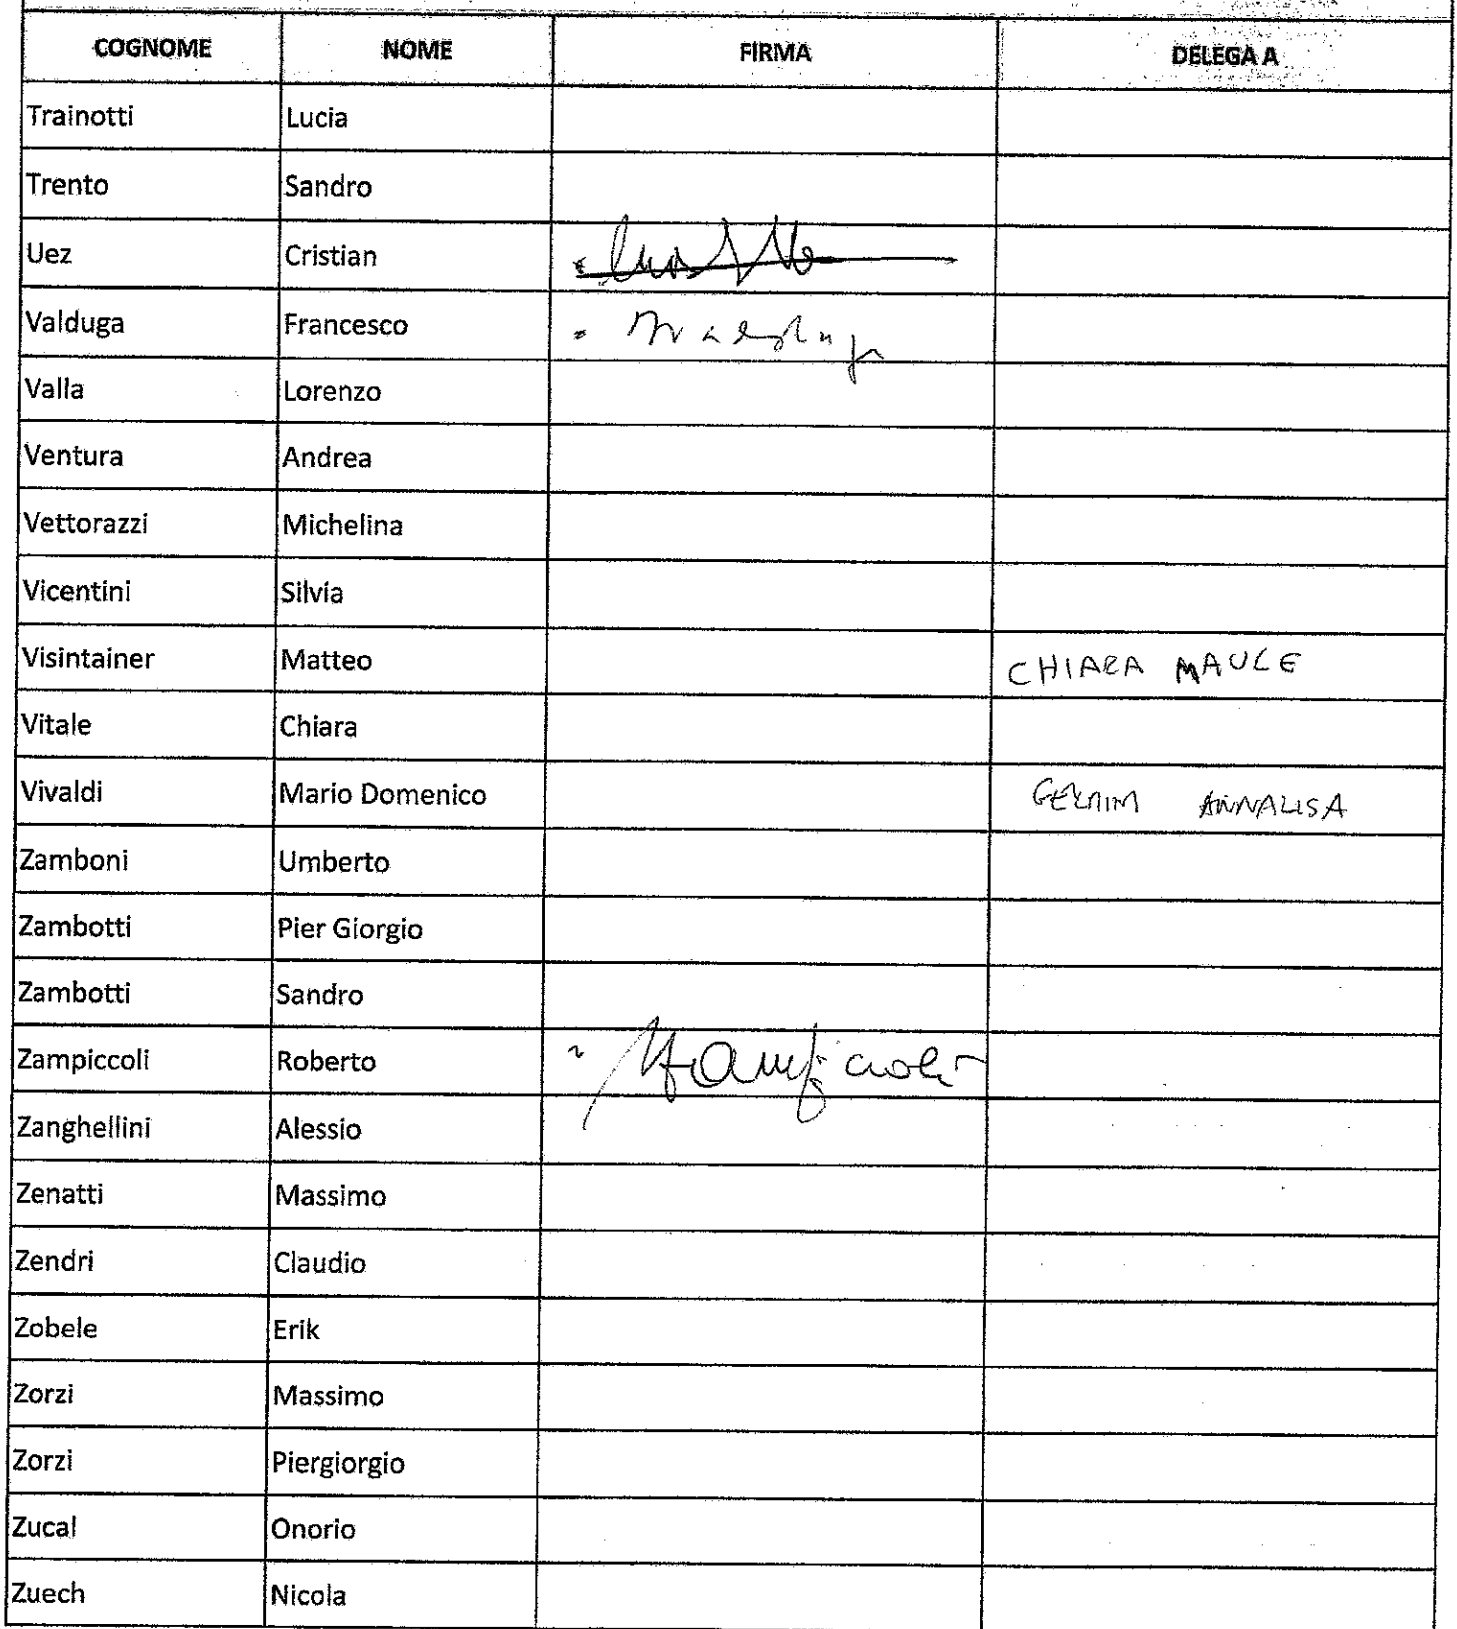 COGNOME NOME FIRMA DELEGA A
Trainotti Lucia
Trento Sandro
Uez Cristian
Valduga Francesco
Valla Lorenzo
Ventura Andrea
Vettorazzi Michelina
Vicentini Silvia
Visintainer Matteo CHIARA MAULE
Vitale Chiara
Vivaldi Mario Domenico ANNALISA
Zamboni Umberto
Zambotti Pier Giorgio
Zambotti Sandro
Zampiccoli Roberto
Zanghellini Alessio
Zenatti Massimo
Zendri Claudio
Zobele Erik
Zorzi Massimo
Zorzi Piergiorgio
Zucal Onorio
Zuech Nicola